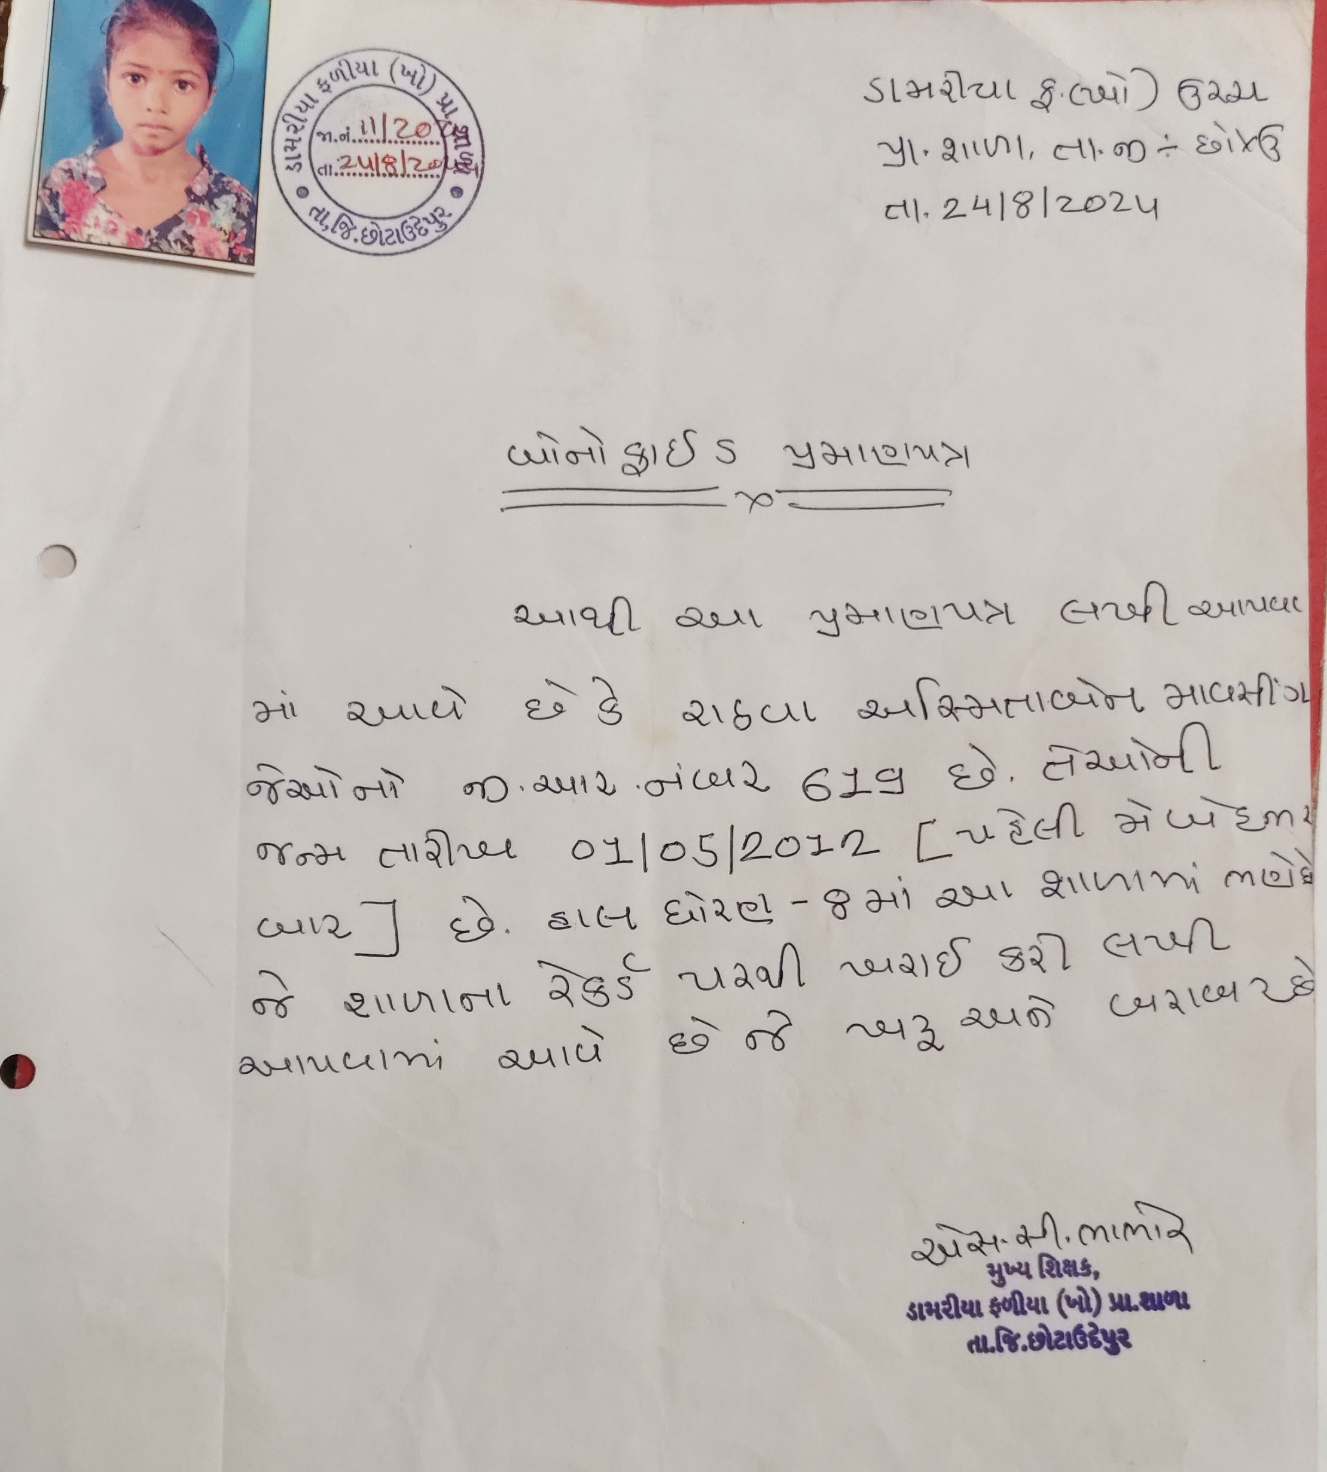 ડામરીયા ફળીયા (ખો) પ્રા.શાળા
જા.નં. 11/20
તા. 24/8/20
તા.જિ.છોટાઉદેપુર
ડામરીયા ફ.(ખો)
પ્રા. શાળા, તા.જી ÷ છોટાઉ
તા. 24/8/2024
બોનોફાઈડ પ્રમાણપત્ર
આથી આ પ્રમાણપત્ર લખી આપવા
માં આવે છે કે રાઠવા અસ્મિતાબેન
જેઓનો જી.આર.નંબર 619 છે. તેઓની
જન્મ તારીખ 01/05/2012 [પહેલી મે બે હજાર
બાર] છે. હાલ ધોરણ - 8 માં આ શાળામાં ભણેછે
જે શાળાના રેકર્ડ પરથી ખરાઈ કરી લખી
આપવામાં આવે છે જે ખરૂ અને બરાબર છે
એસ.સી.ભાભોર
મુખ્ય શિક્ષક,
ડામરીયા ફળીયા (ખો) પ્રા.શાળા
તા.જિ.છોટાઉદેપુર